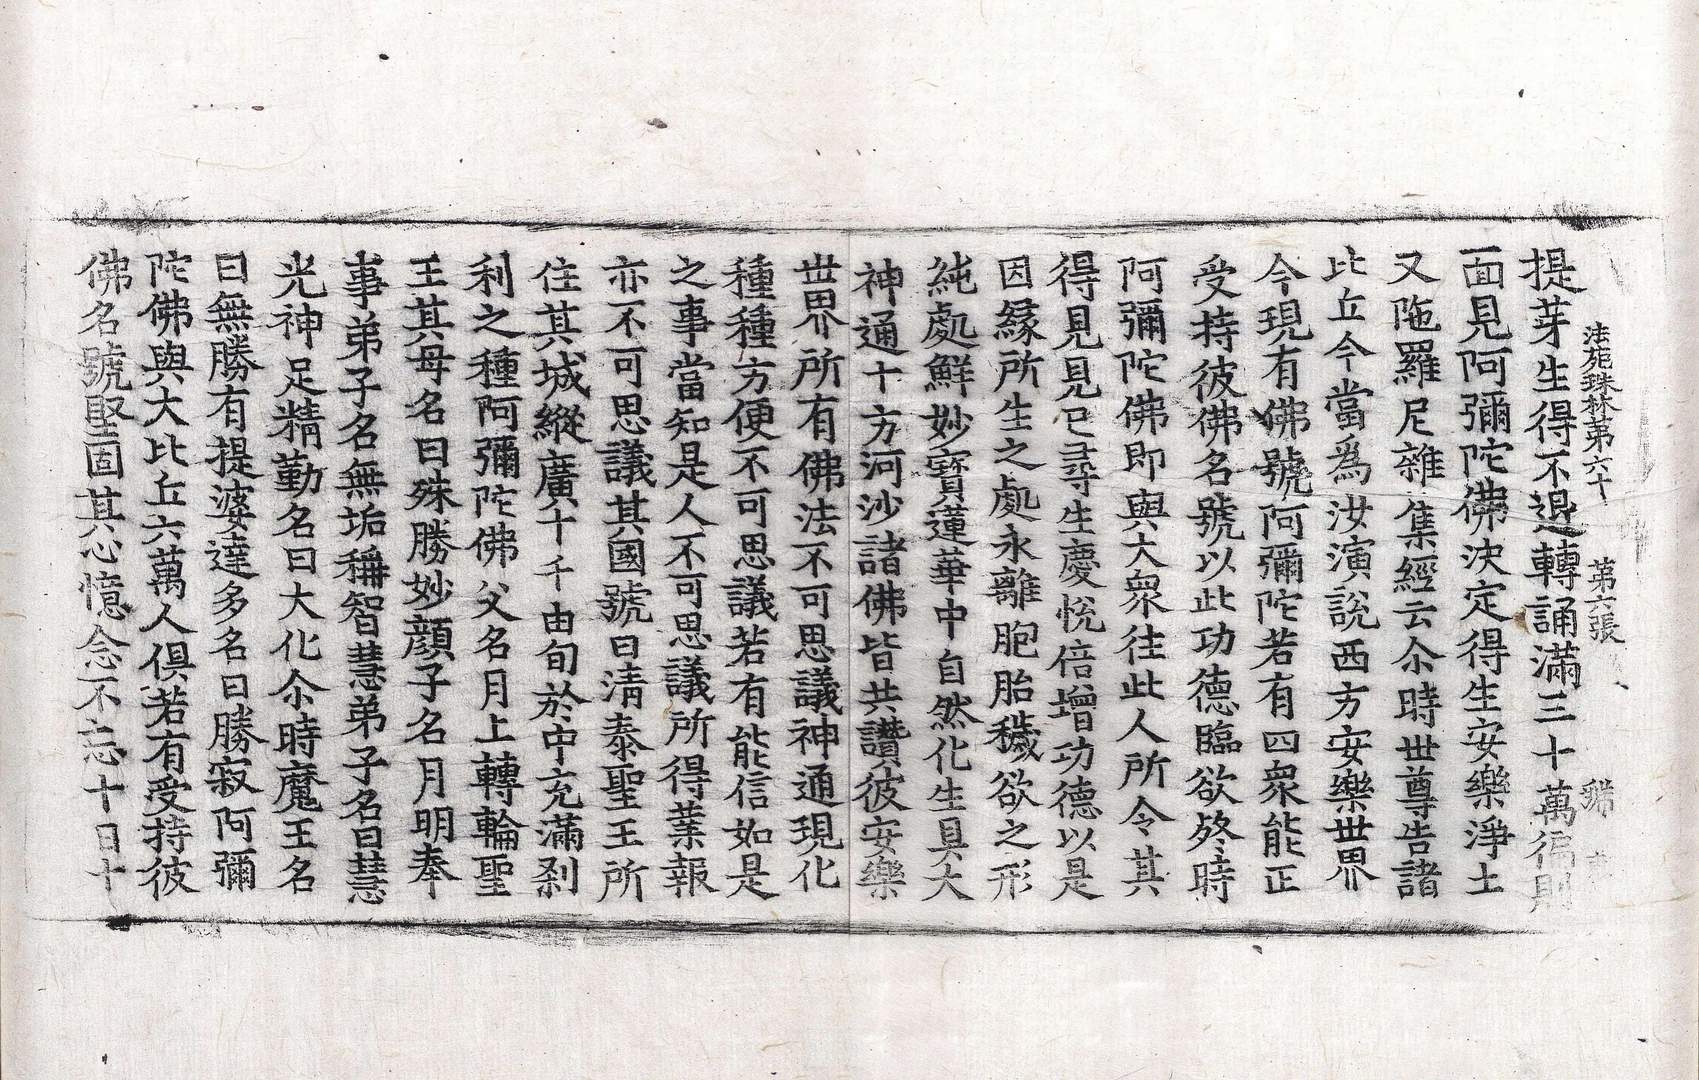 法苑珠林第六十　第六張
提芽生得不退轉誦滿三十萬徧則
面見阿彌陀佛決定得生安樂淨土
又陁羅尼雜集經云尒時世尊告諸
比丘今當為汝演說西方安樂世界
今現有佛號阿彌陀若有四衆能正
受持彼佛名號以此功德臨欲終時
阿彌陀佛即與大衆往此人所令其
得見見已尋生慶悅倍增功德以是
因緣所生之處永離胞胎穢欲之形
純處鮮妙寶蓮華中自然化生具大
神通十方河沙諸佛皆共讚彼安樂
世界所有佛法不可思議神通現化
種種方便不可思議若有能信如是
之事當知是人不可思議所得業報
亦不可思議其國號曰清泰聖王所
住其城縱廣十千由旬於中充滿剎
利之種阿彌陀佛父名月上轉輪聖
王其母名曰殊勝妙顔子名月明奉
事弟子名無垢稱智慧弟子名曰慧
光神足精勤名曰大化尒時魔王名
曰無勝有提婆達多名曰勝寂阿彌
陀佛與大比丘六萬人俱若有受持彼
佛名號堅固其心憶念不忘十日十